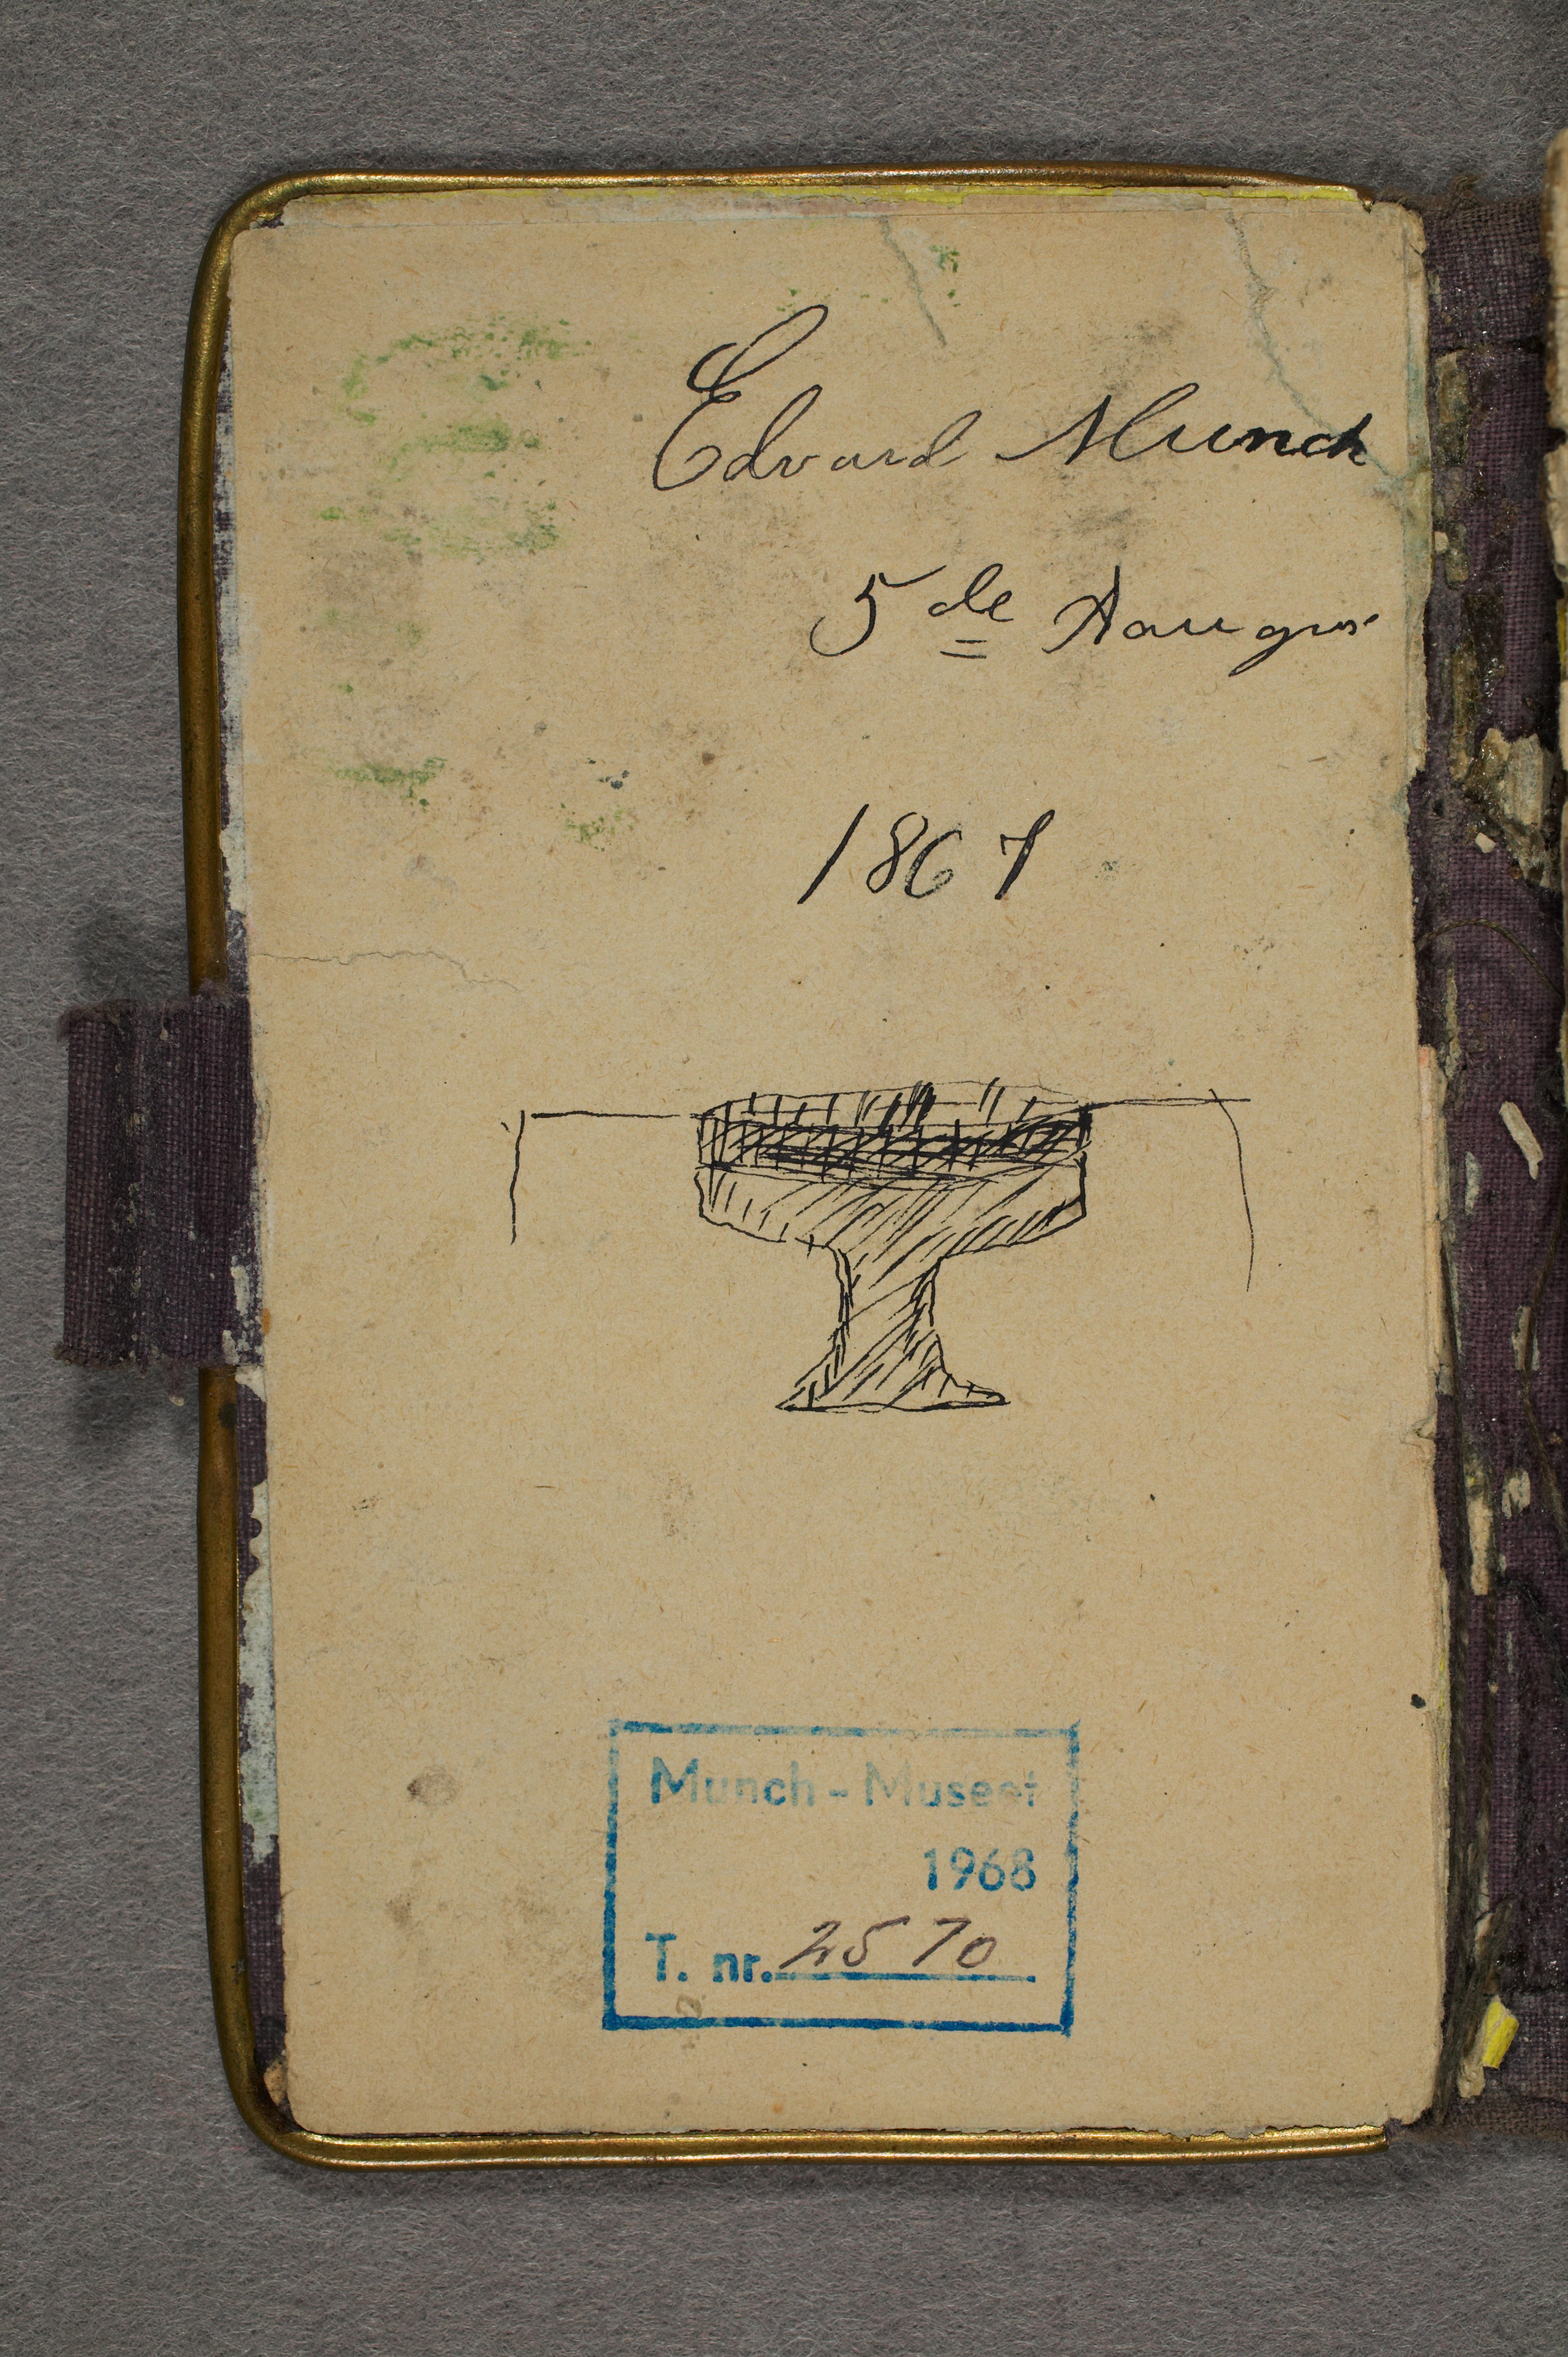 Edvard Munch
5de Aaugus
1867
Munch-Museet
1968
T. nr. 2570